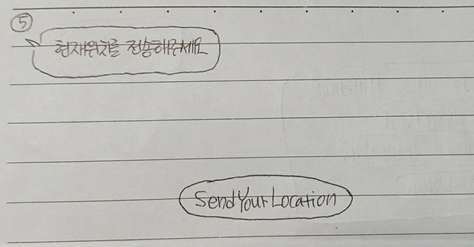 ⑤
현재위치를 전송해주세요
Send Your Location